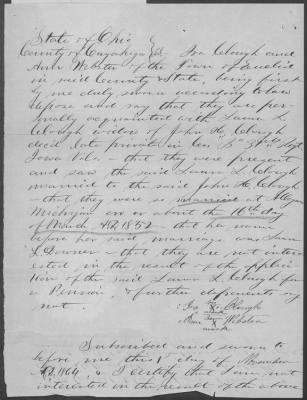 State of Ohio
County of Cuyahoga } SS Ira Clough and
Ann Webster of the Town of Euclid
in said County & State, being first
by me duly sworn according to law
depose and say that they are per-
sonally acquainted with Laura L.
Clough widow of John H. Clough
decd late private in Co. B 3rd Regt
Iowa Vols - that they were present
and saw the said Laura L. Clough
married to the said John H. Clough
- that they were so married at
Michigan on or about the 10th day
of March AD 1852 - that her name
before her said marriage was Laura
L. Downer - that they are not inter-
ested in the result of the applica-
tion of the said Laura L. Clough for
a Pension, & further deponents say
not.
Ira his X mark Clough
Ann her X mark Webster
Subscribed and sworn to
before me this 1 day of November
AD 1864, & I certify that I am not
interested in the result of the above